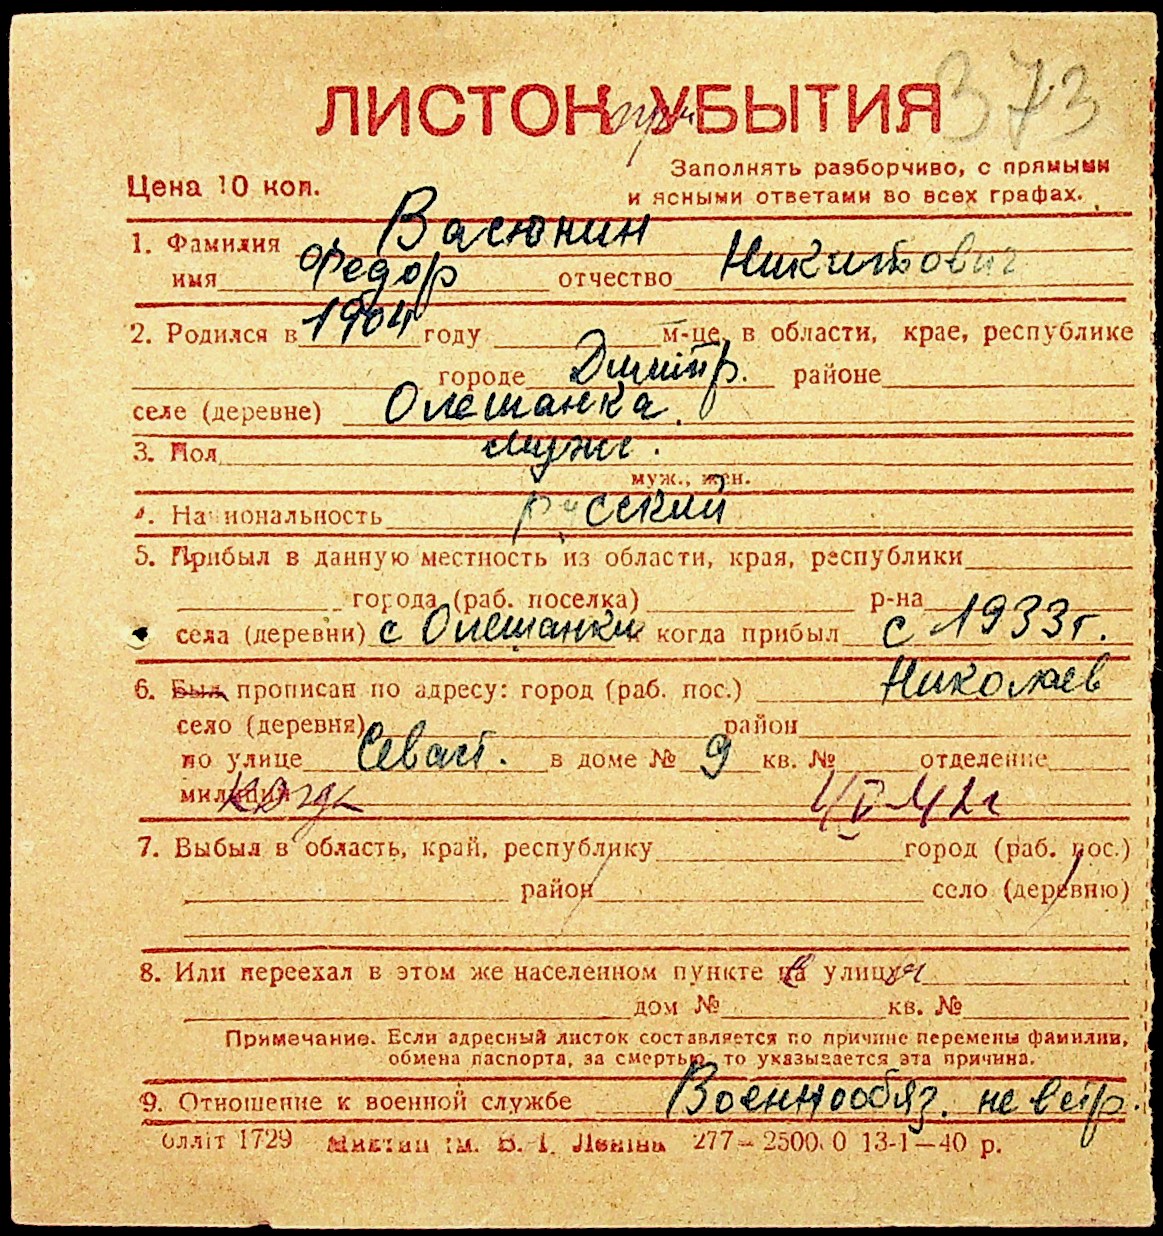 373
ЛИСТОК УБЫТИЯ
при
Цена 10 коп.
Заполнять разборчиво, с прямыми
и ясными ответами во всех графах.
1. Фамилия Васюнин
имя Федор отчество Никитович
2. Родился в 1904 году м-це, в области, крае, республике
городе Димитр. районе
селе (деревне) Олешанка.
3. Пол мужс.
муж., жен.
4. Национальность русский
5. Прибыл в данную местность из области, края, республики
города (раб. поселка) р-на
села (деревни) с Олешанки когда прибыл с 1933г.
6. Был прописан по адресу: город (раб. пос.) Николаев
село (деревня) район
по улице Севаст. в доме № 9 кв. № отделение
милиции когда 4/V-42г
7. Выбыл в область, край, республику город (раб. пос.)
район село (деревню)
8. Или переехал в этом же населенном пункте на улицу
дом № кв. №
Примечание. Если адресный листок составляется по причине перемены фамилии,
обмена паспорта, за смертью, то указывается эта причина.
9. Отношение к военной службе Военнообяз. не встр.
блліт 1729 ім. В. І. Леніна 277—25000 13-1—40 р.